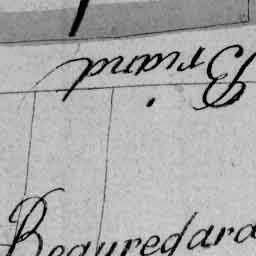 Briand
Beauregard